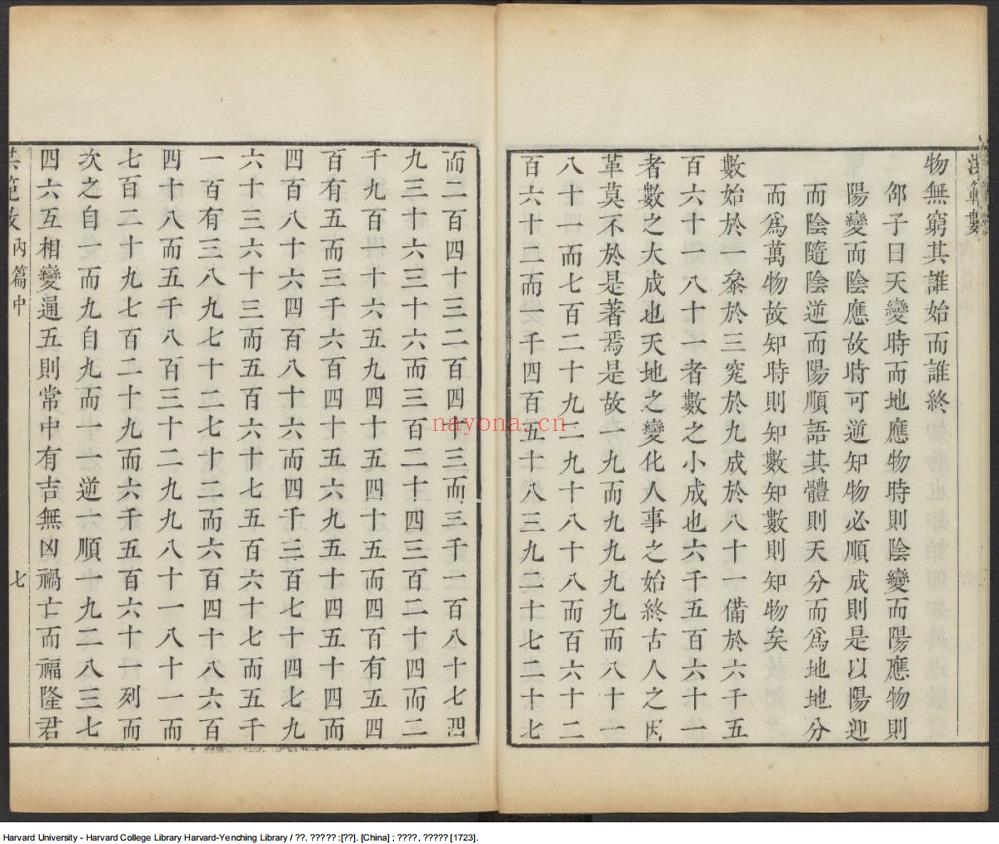 洪範數
物無窮其誰始而誰終
邵子曰天變時而地應物時則陰變而陽應物則
陽變而陰應故時可逆知物必順成則是以陽迎
而陰隨陰逆而陽順語其體則天分而爲地地分
而爲萬物故知時則知數知數則知物矣
數始於一參於三究於九成於八十一備於六千五
百六十一八十一者數之小成也六千五百六十一
者數之大成也天地之變化人事之始終古人之因
革莫不於是著焉是故一九而九九九而八十一
八十一而七百二十九二九十八十八而百六十二
百六十二而一千四百五十八三九二十七二十七
而二百四十三二百四十三而三千一百八十七四
九三十六三十六而三百二十四三百二十四而二
千九百一十六五九四十五四十五而四百有五四
百有五而三千六百四十五六九五十四五十四而
四百八十六四百八十六而四千三百七十四七九
六十三六十三而五百六十七五百六十七而五千
一百有三八九七十二七十二而六百四十八六百
四十八而五千八百三十二九九八十一八十一而
七百二十九七百二十九而六千五百六十一列而
次之自一而九自九而一一逆一順一九二八三七
四六互相變通五則常中有吉無凶禍亡而福隆君
內篇中 七
nayona.cn
Harvard University - Harvard College Library Harvard-Yenching Library / ??. ????? :[??]. [China] ; ????, ????? [1723].